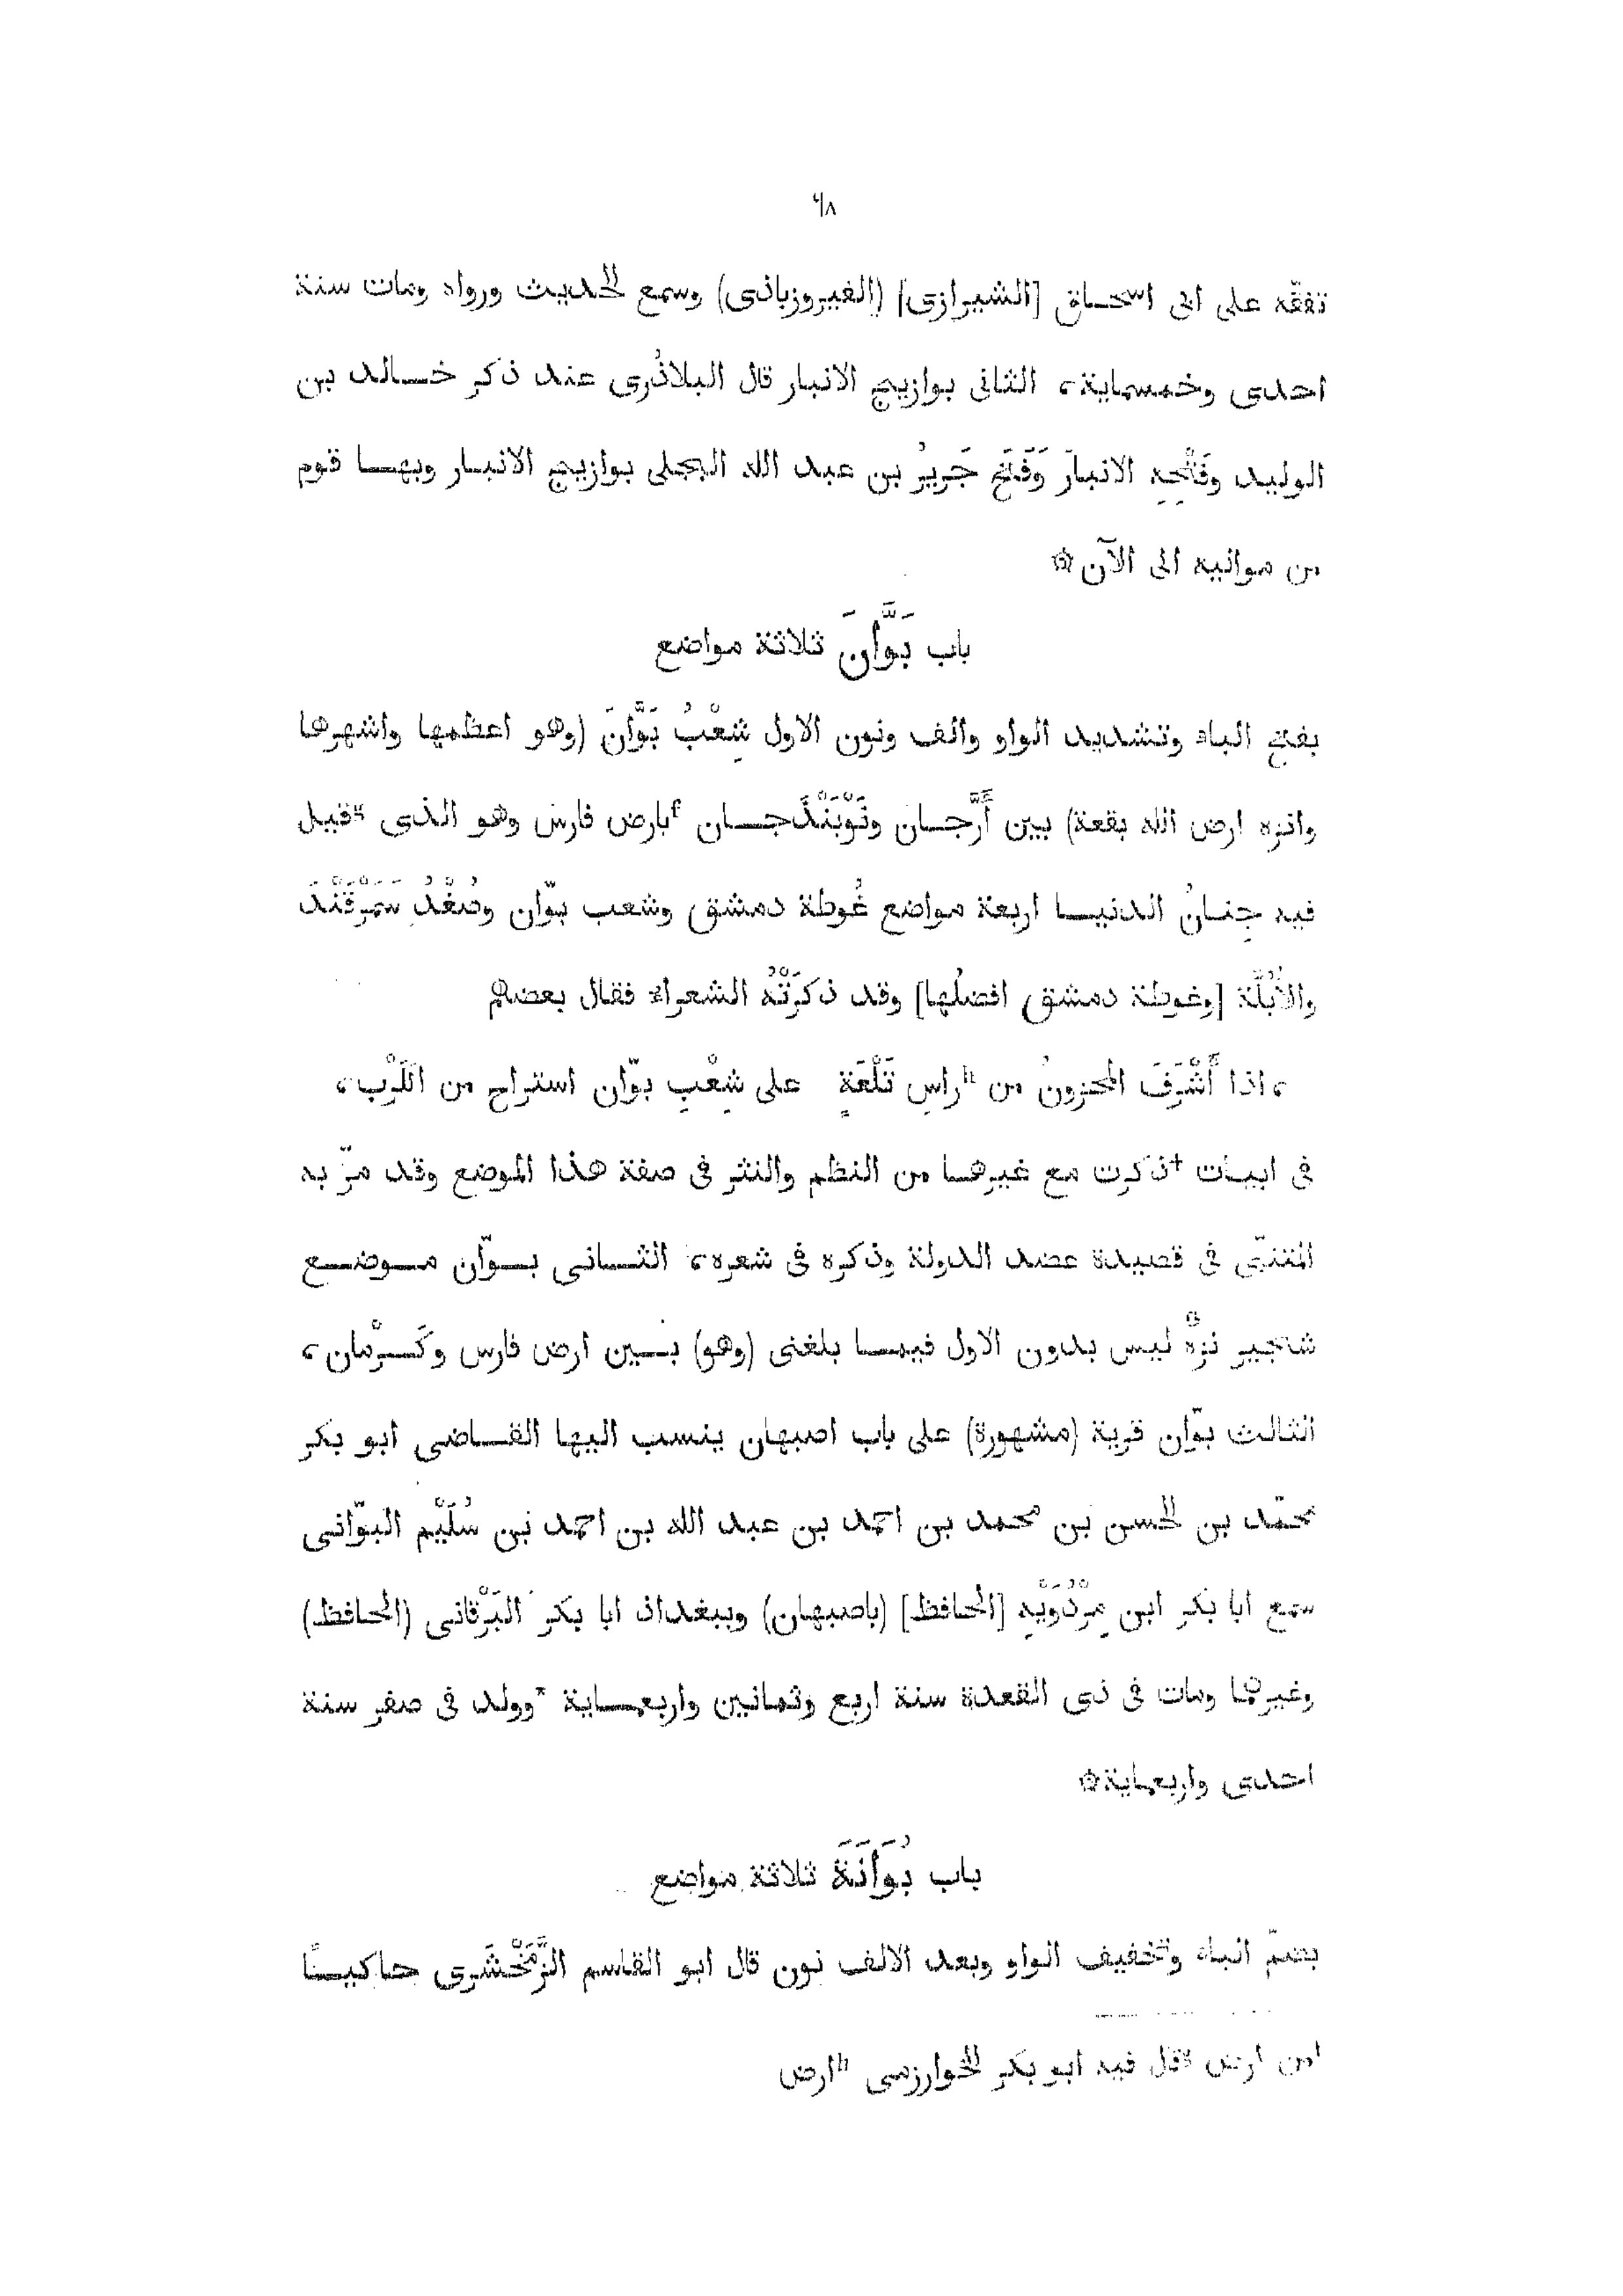 ٦٨
تفقّه على ابى اسحاق [الشيرازى] (الفيروزبانى) وسمع الحديث ورواه ومات سنة
احدى وخمسماية، الثانى بوازيج الانبار قال البلاذُرى عند ذكر خالد بن
الوليد وفَتْحِهِ الانبارَ وَفَتَحَ جَريرُ بن عبد الله البجلى بوازيج الانبار وبها قوم
من موانيه الى الآن ۞
باب بَوَّانَ ثلاثة مواضع
بفتح الباء وتشديد الواو والف ونون الاول شِعْبُ بَوَّانَ (وهو اعظمها واشهرها
وانزه ارض الله بقعة) بين أَرَّجان ونَوْبَنْذَجان ¹بارض فارس وهو الذى ᵍقيل
فيه جِنانُ الدنيا اربعة مواضع غُوطة دمشق وشعب بوّان وصُغْدُ سَمَرْقَنْدَ
والأُبُلَّة [وغوطة دمشق افضلُها] وقد ذكرَتْهُ الشعراء فقال بعضهم
، اذا أَشْرَفَ المحزونُ من ʰراسِ تَلْعَةٍ على شِعْبِ بوّان استراح من الكَرْب،
فى ابيات +ذكرت مع غيرها من النظم والنثر فى صفة هذا الموضع وقد مرّ به
المتنبّى فى قصيدة عضد الدولة وذكره فى شعره، الثانى بوّان موضع
شجير نزهٌ ليس بدون الاول فيما بلغنى (وهو) بين ارض فارس وكَرْمان،
الثالث بوّان قرية (مشهورة) على باب اصبهان ينسب اليها القاضى ابو بكر
محمّد بن الحسن بن محمد بن احمد بن عبد الله بن احمد بن سُلَيْم البوّانى
سمع ابا بكر ابن مِرْدُوَيْهِ [الحافظ] (باصبهان) وببغداد ابا بكر البَرْقانى (الحافظ)
وغيرهما ومات فى ذى القعدة سنة اربع وثمانين واربعماية *وولد فى صفر سنة
احدى واربعماية ۞
باب بُوَانَةَ ثلاثة مواضع
بضمّ الباء وتخفيف الواو وبعد الالف نون قال ابو القاسم الزَّمَخْشَرى حاكيًا
¹من ارض ᵍقال فيه ابو بكر الخوارزمى ʰارض